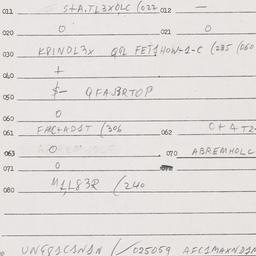 011 S+A,TL3XOLC (022 012 —
020 O 021 O
030 KPINDL3X QQL FET1HOW-1-C (235 (060
040 +
050 $- QFAJ3RTOP
060 O
061 FAC+AD1T (306 062 O+4TZ
063 O 070 ABREMHOLC
071 O
080 M1L83R (240
UNGR1C1N1N (/025059 AFC1MAXND1N